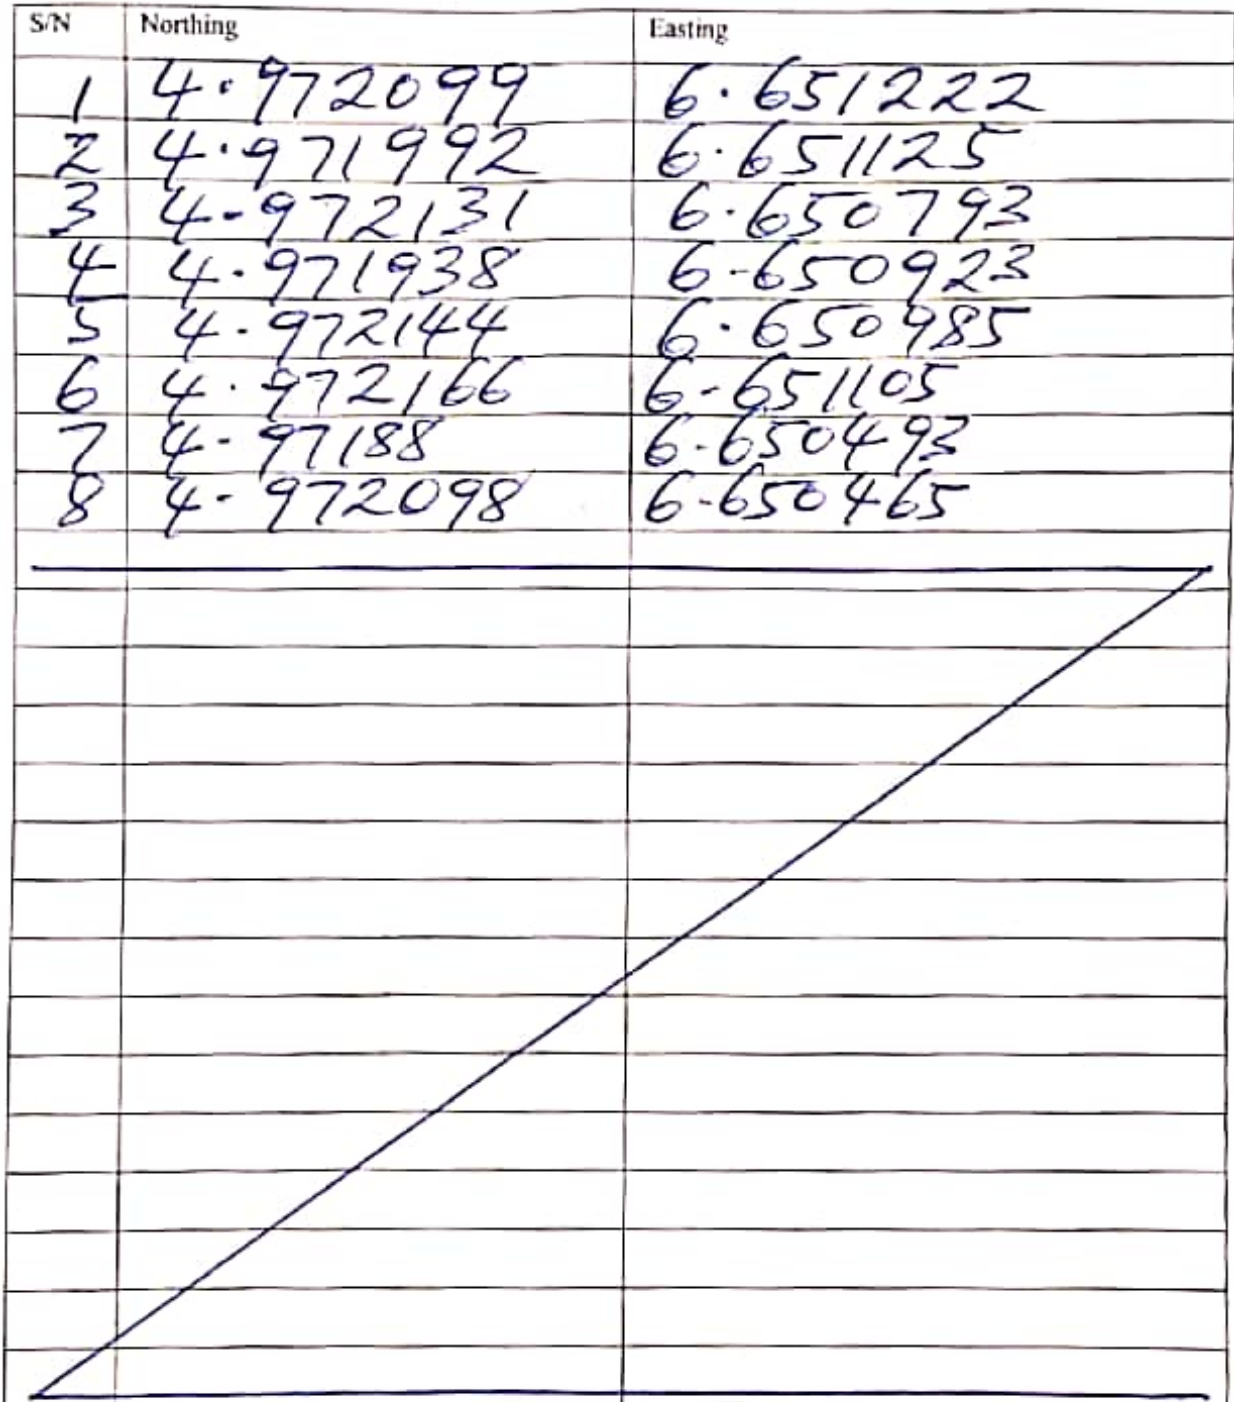 S/N Northing Easting
1 4.972099 6.651222
2 4.971992 6.651125
3 4.972131 6.650793
4 4.971938 6.650923
5 4.972144 6.650985
6 4.972166 6.651105
7 4.97188 6.650493
8 4.972098 6.650465